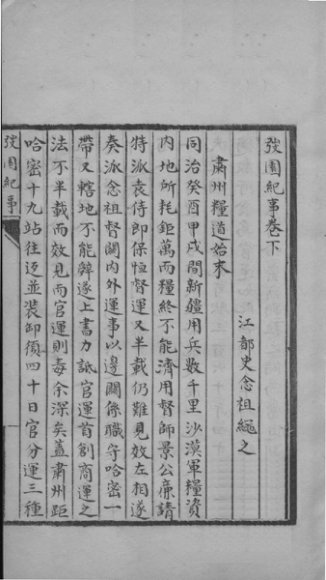 弢園紀事卷下
江都史念祖繩之
肅州糧道始末
同治癸酉甲戌間新疆用兵數千里沙漠軍糧資
內地所耗鉅萬而糧終不能濟用督師景公廉請
特派袁侍郎保恒督運又半載仍難見效左相遂
奏派念祖督關內外運事以邊關係職守哈密一
帶又轄地不能辭遂上書力詆官運首創商運之
法不半載而效見而官運則毒余深矣蓋肅州距
哈密十九站往返並裝卸須四十日官分運三種
弢園紀事